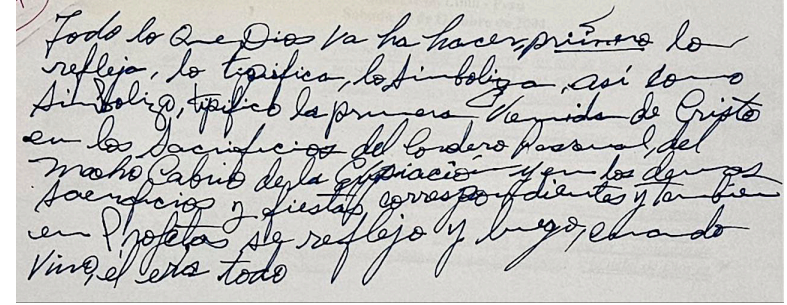 Todo lo que Dios va ha hacer, primero lo
refleja, lo tipifica, lo simboliza, así como
simbolizo, tipifico la primera Venida de Cristo
en los Sacrificios del Cordero Pascual, del
macho Cabrio de la Expiación y en los demas
sacrificios y fiestas correspondientes y tambien
en Profetas se reflejo y luego, cuando
Vino, él era todo